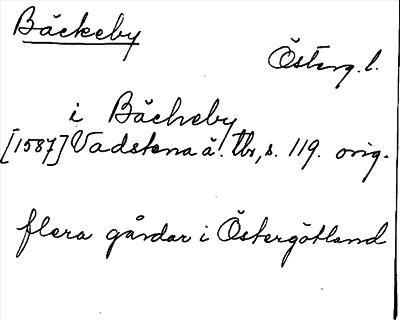 Bäckeby
Österg. l.
i Bächeby
[1587] Vadstena ä. tb, s. 119. orig.
flera gårdar i Östergötland